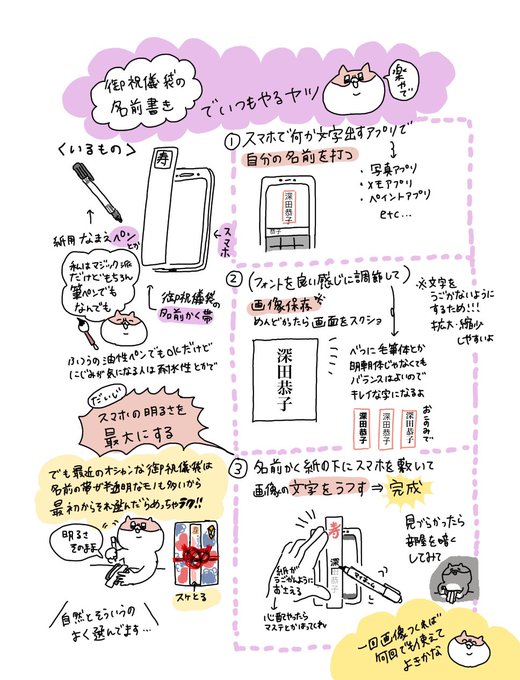 御祝儀袋の
名前書き
でいつもやるヤツ
楽やで
＜いるもの＞
寿
紙用 なまえペンとか
スマホ
御祝儀袋の
名前かく帯
私はマジック派
だけどもちろん
筆ペンでも
なんでも
ふつうの油性ペンでもOKだけど
にじみが気になる人は耐水性とかで
① スマホで何か文字出すアプリで
自分の名前を打つ
・写真アプリ
・メモアプリ
・ペイントアプリ
etc...
深田恭子
恭子
② (フォントを良い感じに調節して)
画像保存※
めんどかったら画面をスクショ
※文字を
うごかないように
するため!!!
拡大・縮小
しやすいよ
深田恭子
べつに毛筆体とか
明朝体じゃなくても
バランスはよいので
キレイな字になるよ
深田恭子
深田恭子
深田恭子
おこのみで
だいじ
スマホの明るさを
最大にする
でも最近のオシャンな御祝儀袋は
名前の帯が半透明なモノも多いから
最初からそれ選んだらめっちゃラク!!
明るさ
そのままよ
寿
スケとる
自然とそういうの
よく選んでます…
③ 名前かく紙の下にスマホを敷いて
画像の文字をうつす ⇒ 完成
寿
深田恭子
紙が
うごかんように
おさえる
心配やったら
マステとかはってくれ
見づらかったら
部屋を暗く
してみて
一回画像つくれば
何回でも使えて
よきかな